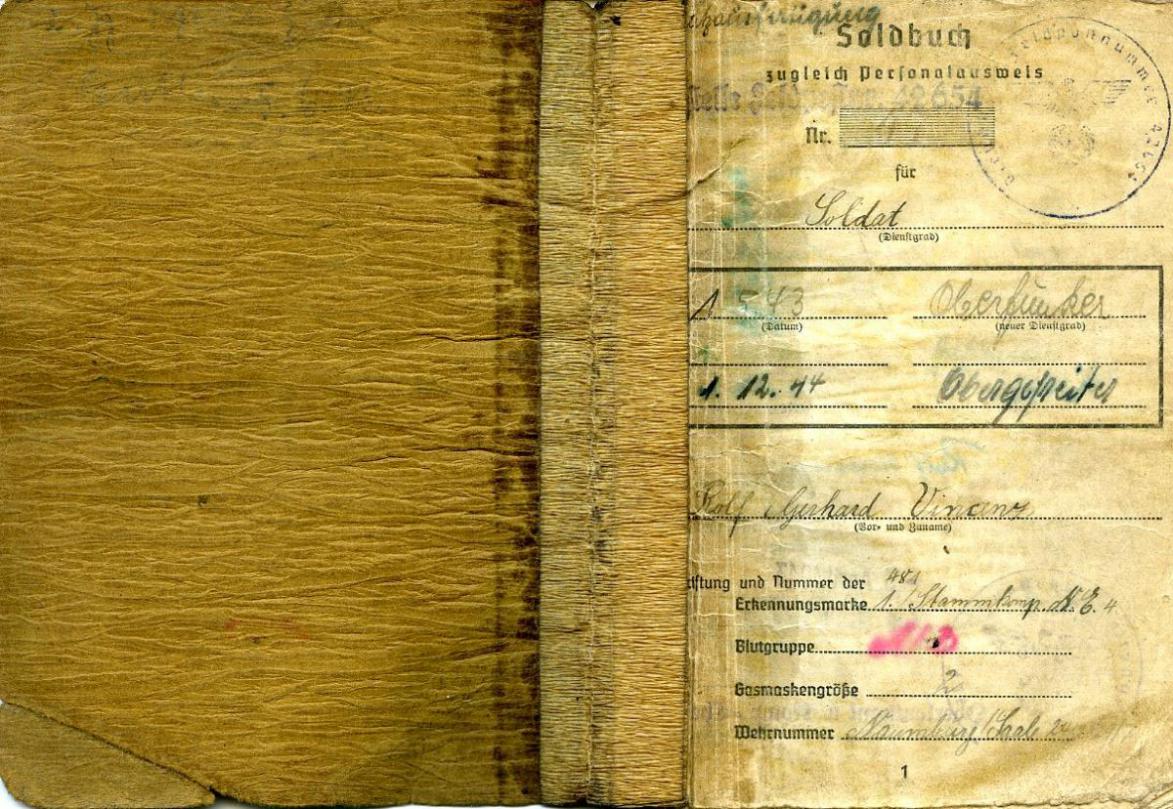 Soldbuch
zugleich Personalausweis
Feldpostnummer 42654
Nr.
für
Soldat
(Dienstgrad)
1 5 43 Oberfunker
(Datum) (neuer Dienstgrad)
1. 12. 44 Obergefreiter
Rolf Gerhard
(Vor- und Zuname)
iftung und Nummer der 481
Erkennungsmarke 1. Stammkomp. N. E. 4
Blutgruppe
Gasmaskengröße 2
Wehrnummer Naumburg/Saale
1